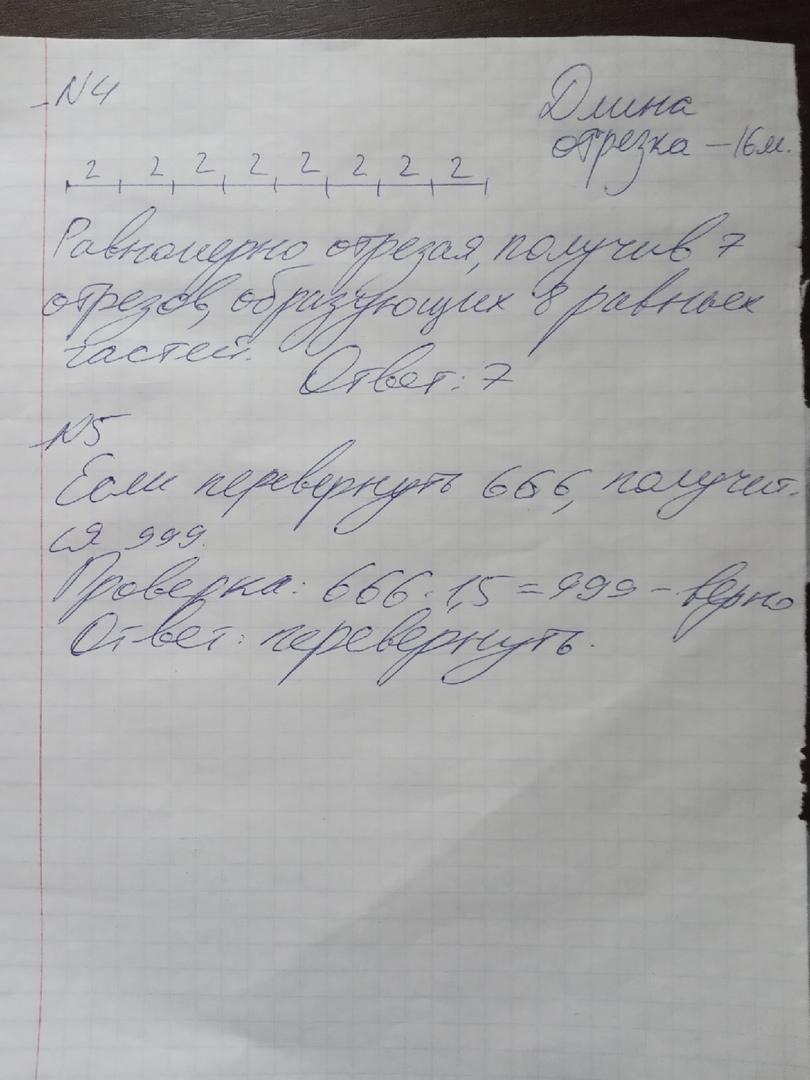 N4
Длина
отрезка – 16м.
2 2 2 2 2 2 2 2
Равномерно отрезая, получив 7
отрезов, образующих 8 равных
частей.
Ответ: 7
N5
Если перевернуть 666, получит-
ся 999.
Проверка: 666 · 1,5 = 999 – верно
Ответ: перевернуть.